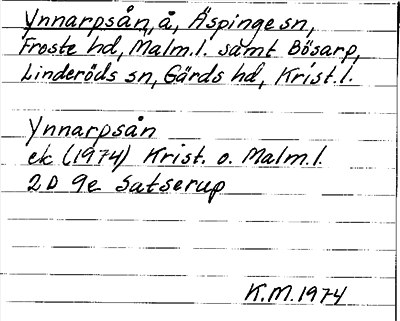 Ynnarpsån, å, Äspinge sn,
Froste hd, Malm.l. samt Bösarp,
Linderöds sn, Gärds hd, Krist.l.
Ynnarpsån
ek (1974) Krist. o. Malm.l.
2D 9e Satserup
K.M.1974